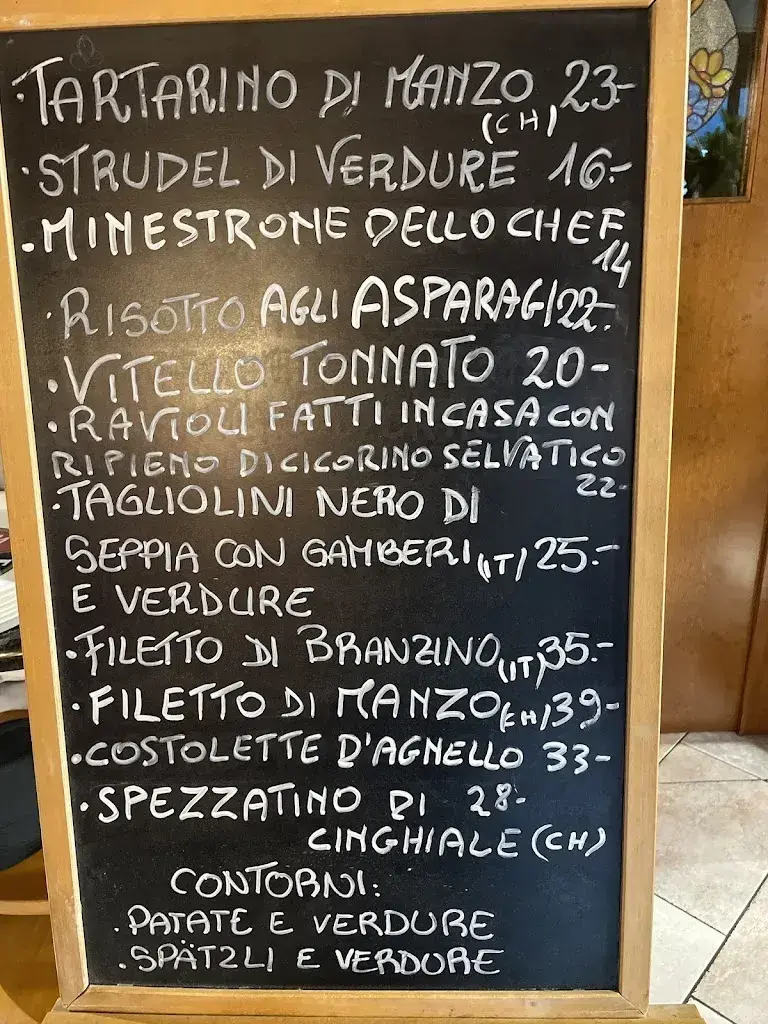 ·TARTARINO DI MANZO 23-
(CH)
·STRUDEL DI VERDURE 16.-
·MINESTRONE DELLO CHEF
14
·RISOTTO AGLI ASPARAGI 22.-
·VITELLO TONNATO 20-
·RAVIOLI FATTI IN CASA CON
RIPIENO DI CICORINO SELVATICO
22-
·TAGLIOLINI NERO DI
SEPPIA CON GAMBERI (IT) 25.-
E VERDURE
·FILETTO DI BRANZINO (IT) 35.-
·FILETTO DI MANZO (CH) 39-
·COSTOLETTE D'AGNELLO 33-
·SPEZZATINO DI 28-
CINGHIALE (CH)
CONTORNI:
·PATATE E VERDURE
·SPÄTZLI E VERDURE